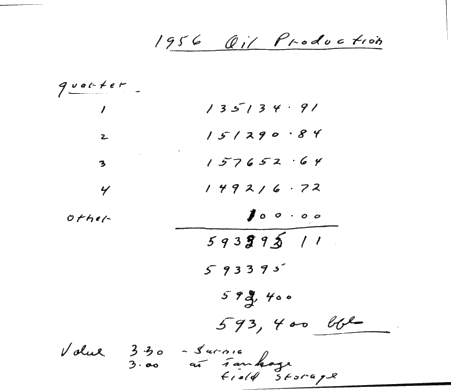 1956 Oil Production
quarter
1 135134.91
2 151290.84
3 157652.64
4 149216.72
other 100.00
593395 11
593395
593,400
593,400 bbls
Value 3.30 - Sarnia
3.00 at Tankage
field storage